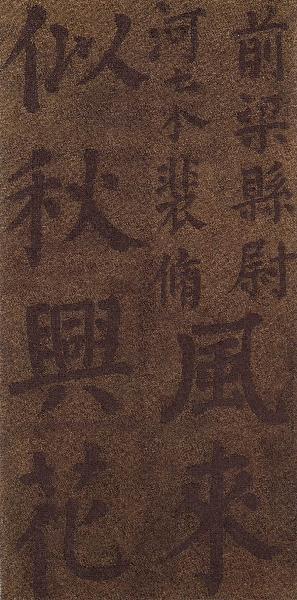 前梁縣尉
河裴脩
風來
似秋興花